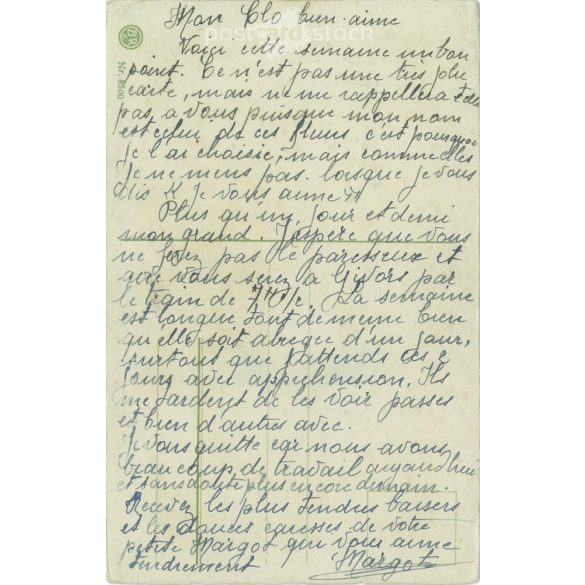 Mon Clo bien-aimé
postcards stock
BR
Nr. 8500
Voici cette semaine un bon
point. Ce n'est pas une très jolie
carte, mais ne me rappellera t-elle
pas, a vous puisque mon nom
est celui de ces fleurs c'est pourquoi
je l'ai choisie, mais comme elles
je ne mens pas lorsque je vous
dis " je vous aime "
Plus qu'un jour et demi
mon grand. J'espère que vous
ne ferez pas le paresseux et
que vous serez a Givors par
le train de La semaine
est longue tout de meme bien
qu'elle soit abregee d'un jour,
surtout que j'attends ces 2
jours avec apprehension. Ils
me tardent de les voir passes
et bien d'autres avec.
Je vous quitte car nous avons
beaucoup de travail aujourd'hui
et sans doute plus encore demain.
Recevez les plus tendres baisers
et les douces caresses de votre
petite Margot qui vous aime
tendrement Margot